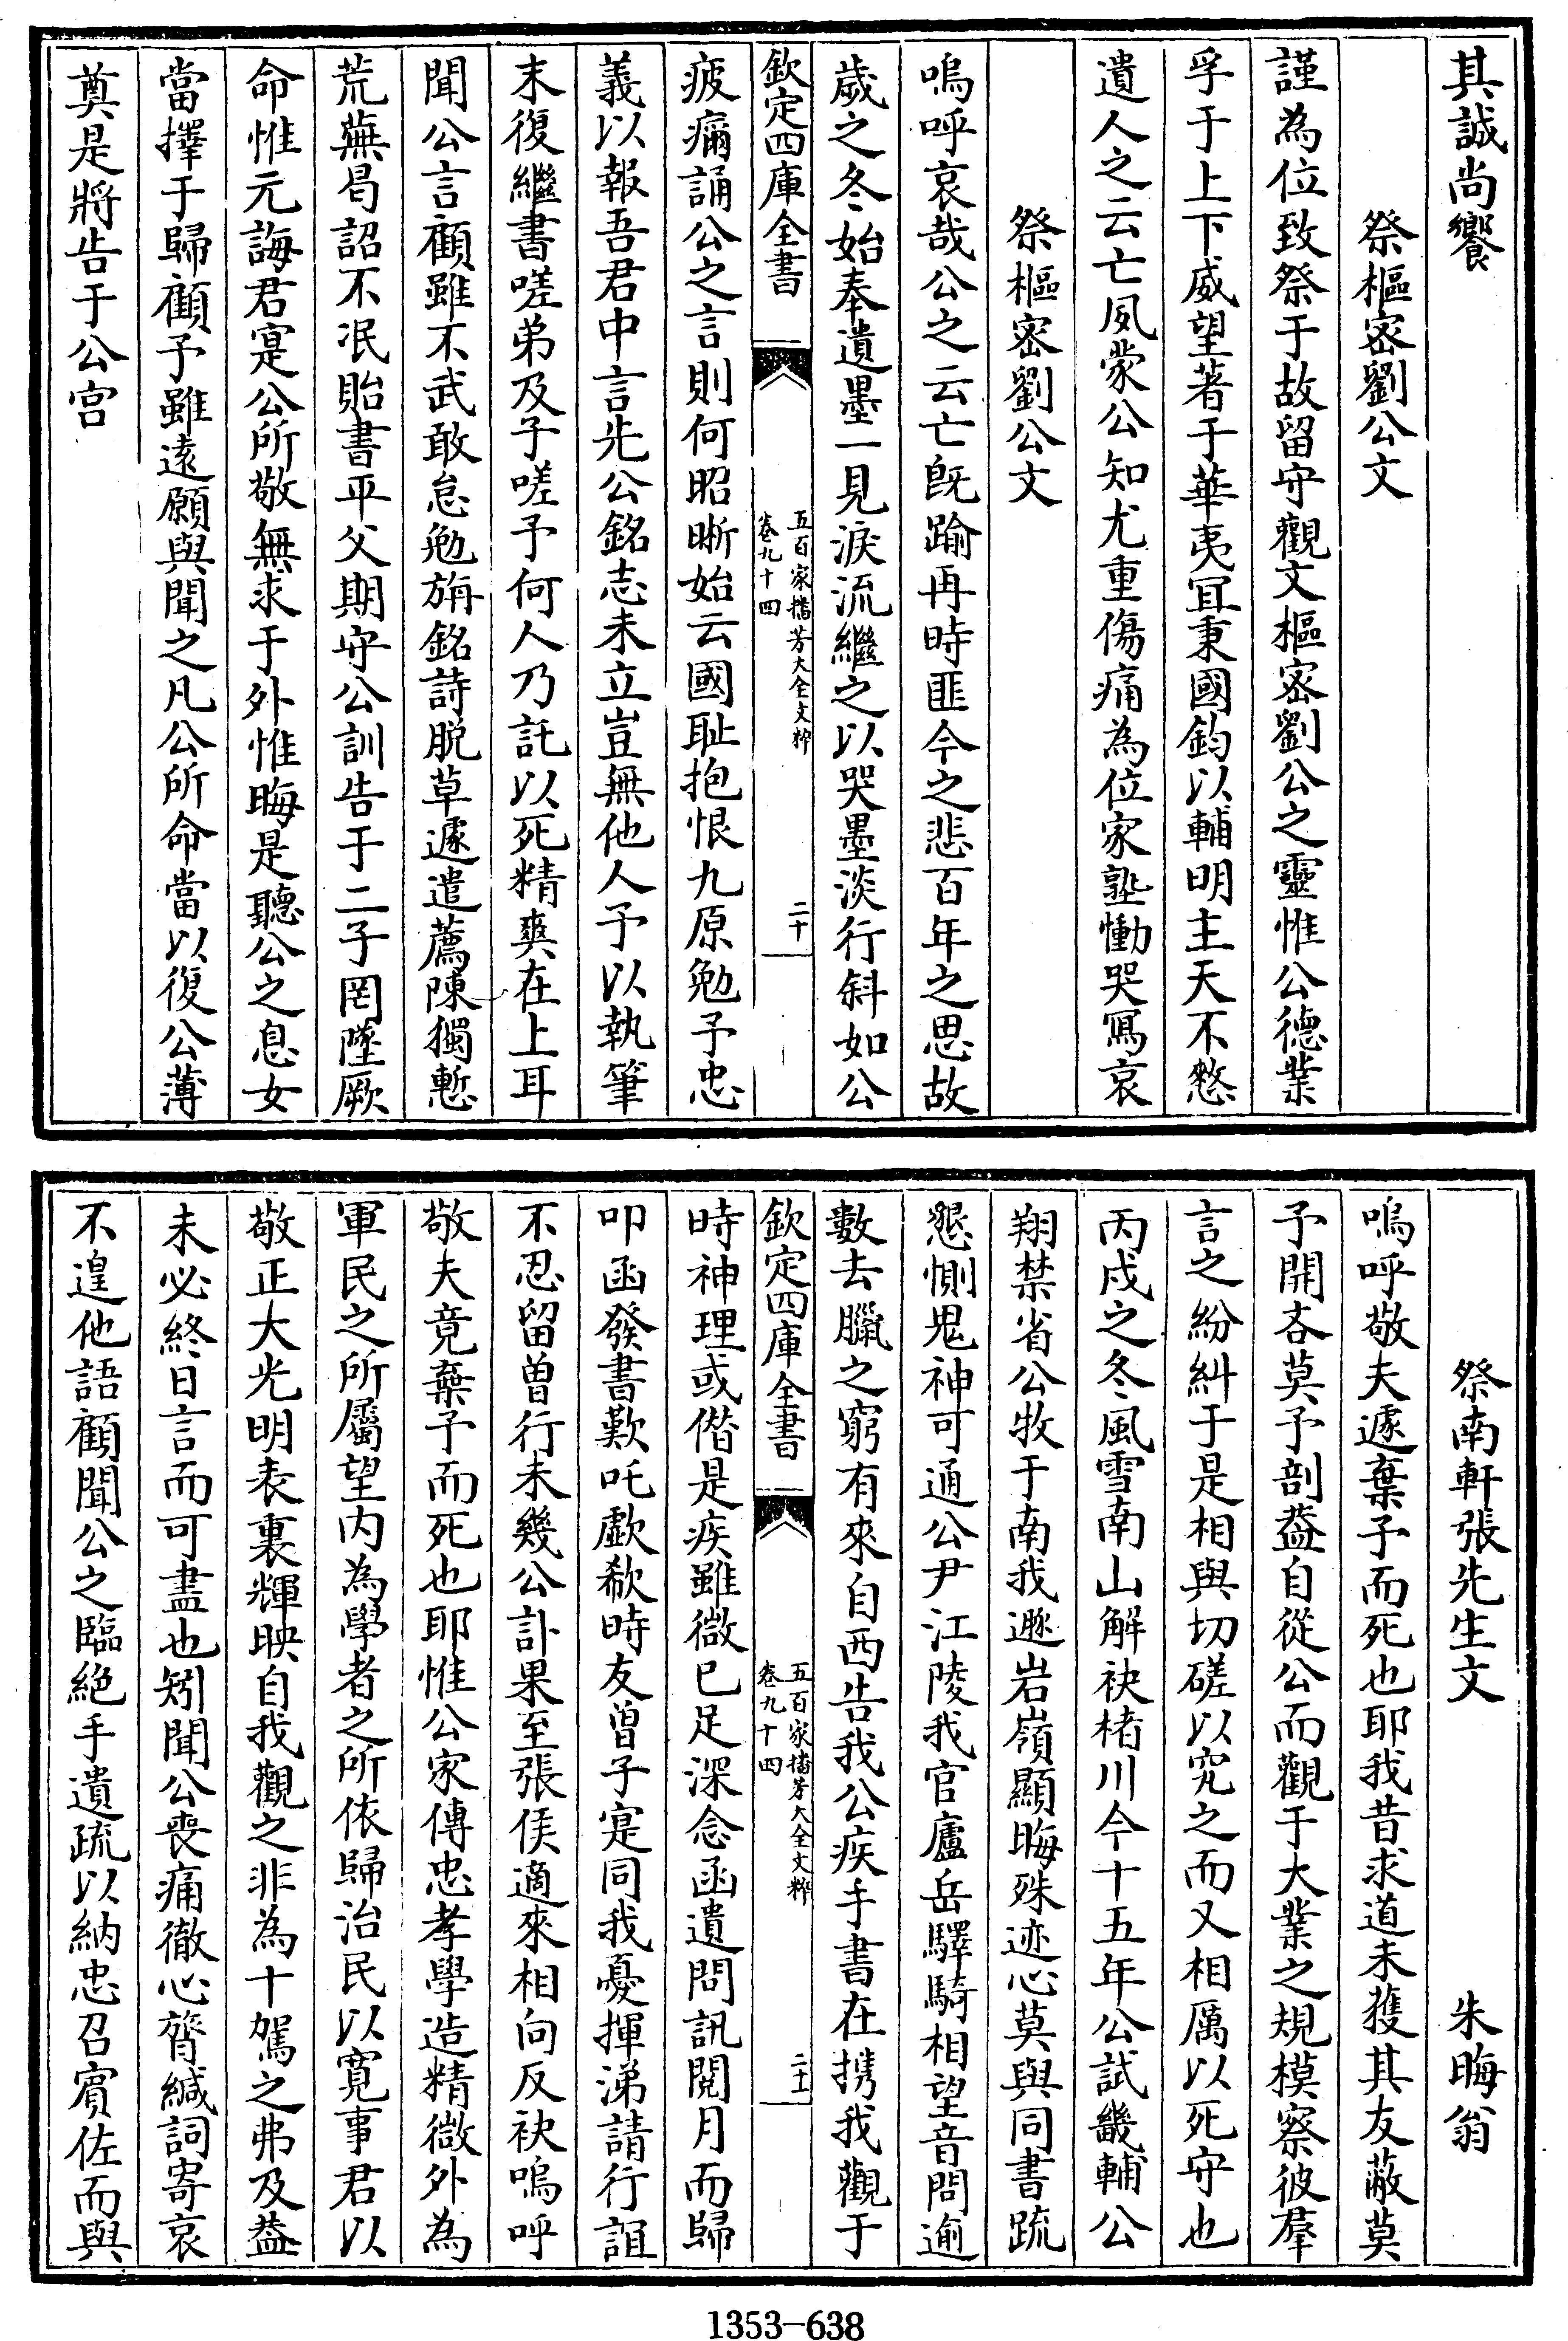 其誠尚饗
祭樞密劉公文
謹為位致祭于故留守觀文樞密劉公之靈惟公德業
孚于上下威望著于華夷冝秉國鈞以輔明主天不憗
遺人之云亡夙蒙公知尤重傷痛為位家塾慟哭冩哀
祭樞密劉公文
嗚呼哀哉公之云亡既踰再時匪今之悲百年之思故
歲之冬始奉遺墨一見淚流繼之以哭墨淡行斜如公
欽定四庫全書
五百家播芳大全文粹
卷九十四
二十
疲癎誦公之言則何昭晣始云國耻抱恨九原勉予忠
義以報吾君中言先公銘志未立豈無他人予以執筆
末復繼書嗟弟及子嗟予何人乃託以死精爽在上耳
聞公言顧雖不武敢怠勉旃銘詩脱草遽遣薦陳獨慙
荒蕪曷詔不泯貽書平父期守公訓告于二子罔墜厥
命惟元誨君寔公所敬無求于外惟晦是聽公之息女
當擇于歸顧予雖遠願與聞之凡公所命當以復公薄
奠是將告于公宫
祭南軒張先生文 朱晦翁
嗚呼敬夫遽棄予而死也耶我昔求道未獲其友蔽莫
予開吝莫予剖葢自從公而觀于大業之規模察彼羣
言之紛糾于是相與切磋以究之而又相厲以死守也
丙戌之冬風雪南山解袂櫧川今十五年公試畿輔公
翔禁省公牧于南我遯岩嶺顯晦殊迹心莫與同書疏
懇惻鬼神可通公尹江陵我官廬岳驛騎相望音問逾
數去臘之窮有來自西告我公疾手書在携我觀于
欽定四庫全書
五百家播芳大全文粹
卷九十四
二十一
時神理或偕是疾雖微已足深念函遺問訊閱月而歸
叩函發書歎吒歔欷時友曾子寔同我憂揮涕請行誼
不忍留曽行未幾公訃果至張侯適來相向反袂嗚呼
敬夫竟棄予而死也耶惟公家傳忠孝學造精微外為
軍民之所屬望内為學者之所依歸治民以寛事君以
敬正大光明表裏輝映自我觀之非為十駕之弗及葢
未必終日言而可盡也矧聞公喪痛徹心膂緘詞寄哀
不遑他語顧聞公之臨絶手遺疏以納忠召賓佐而與
1353-638